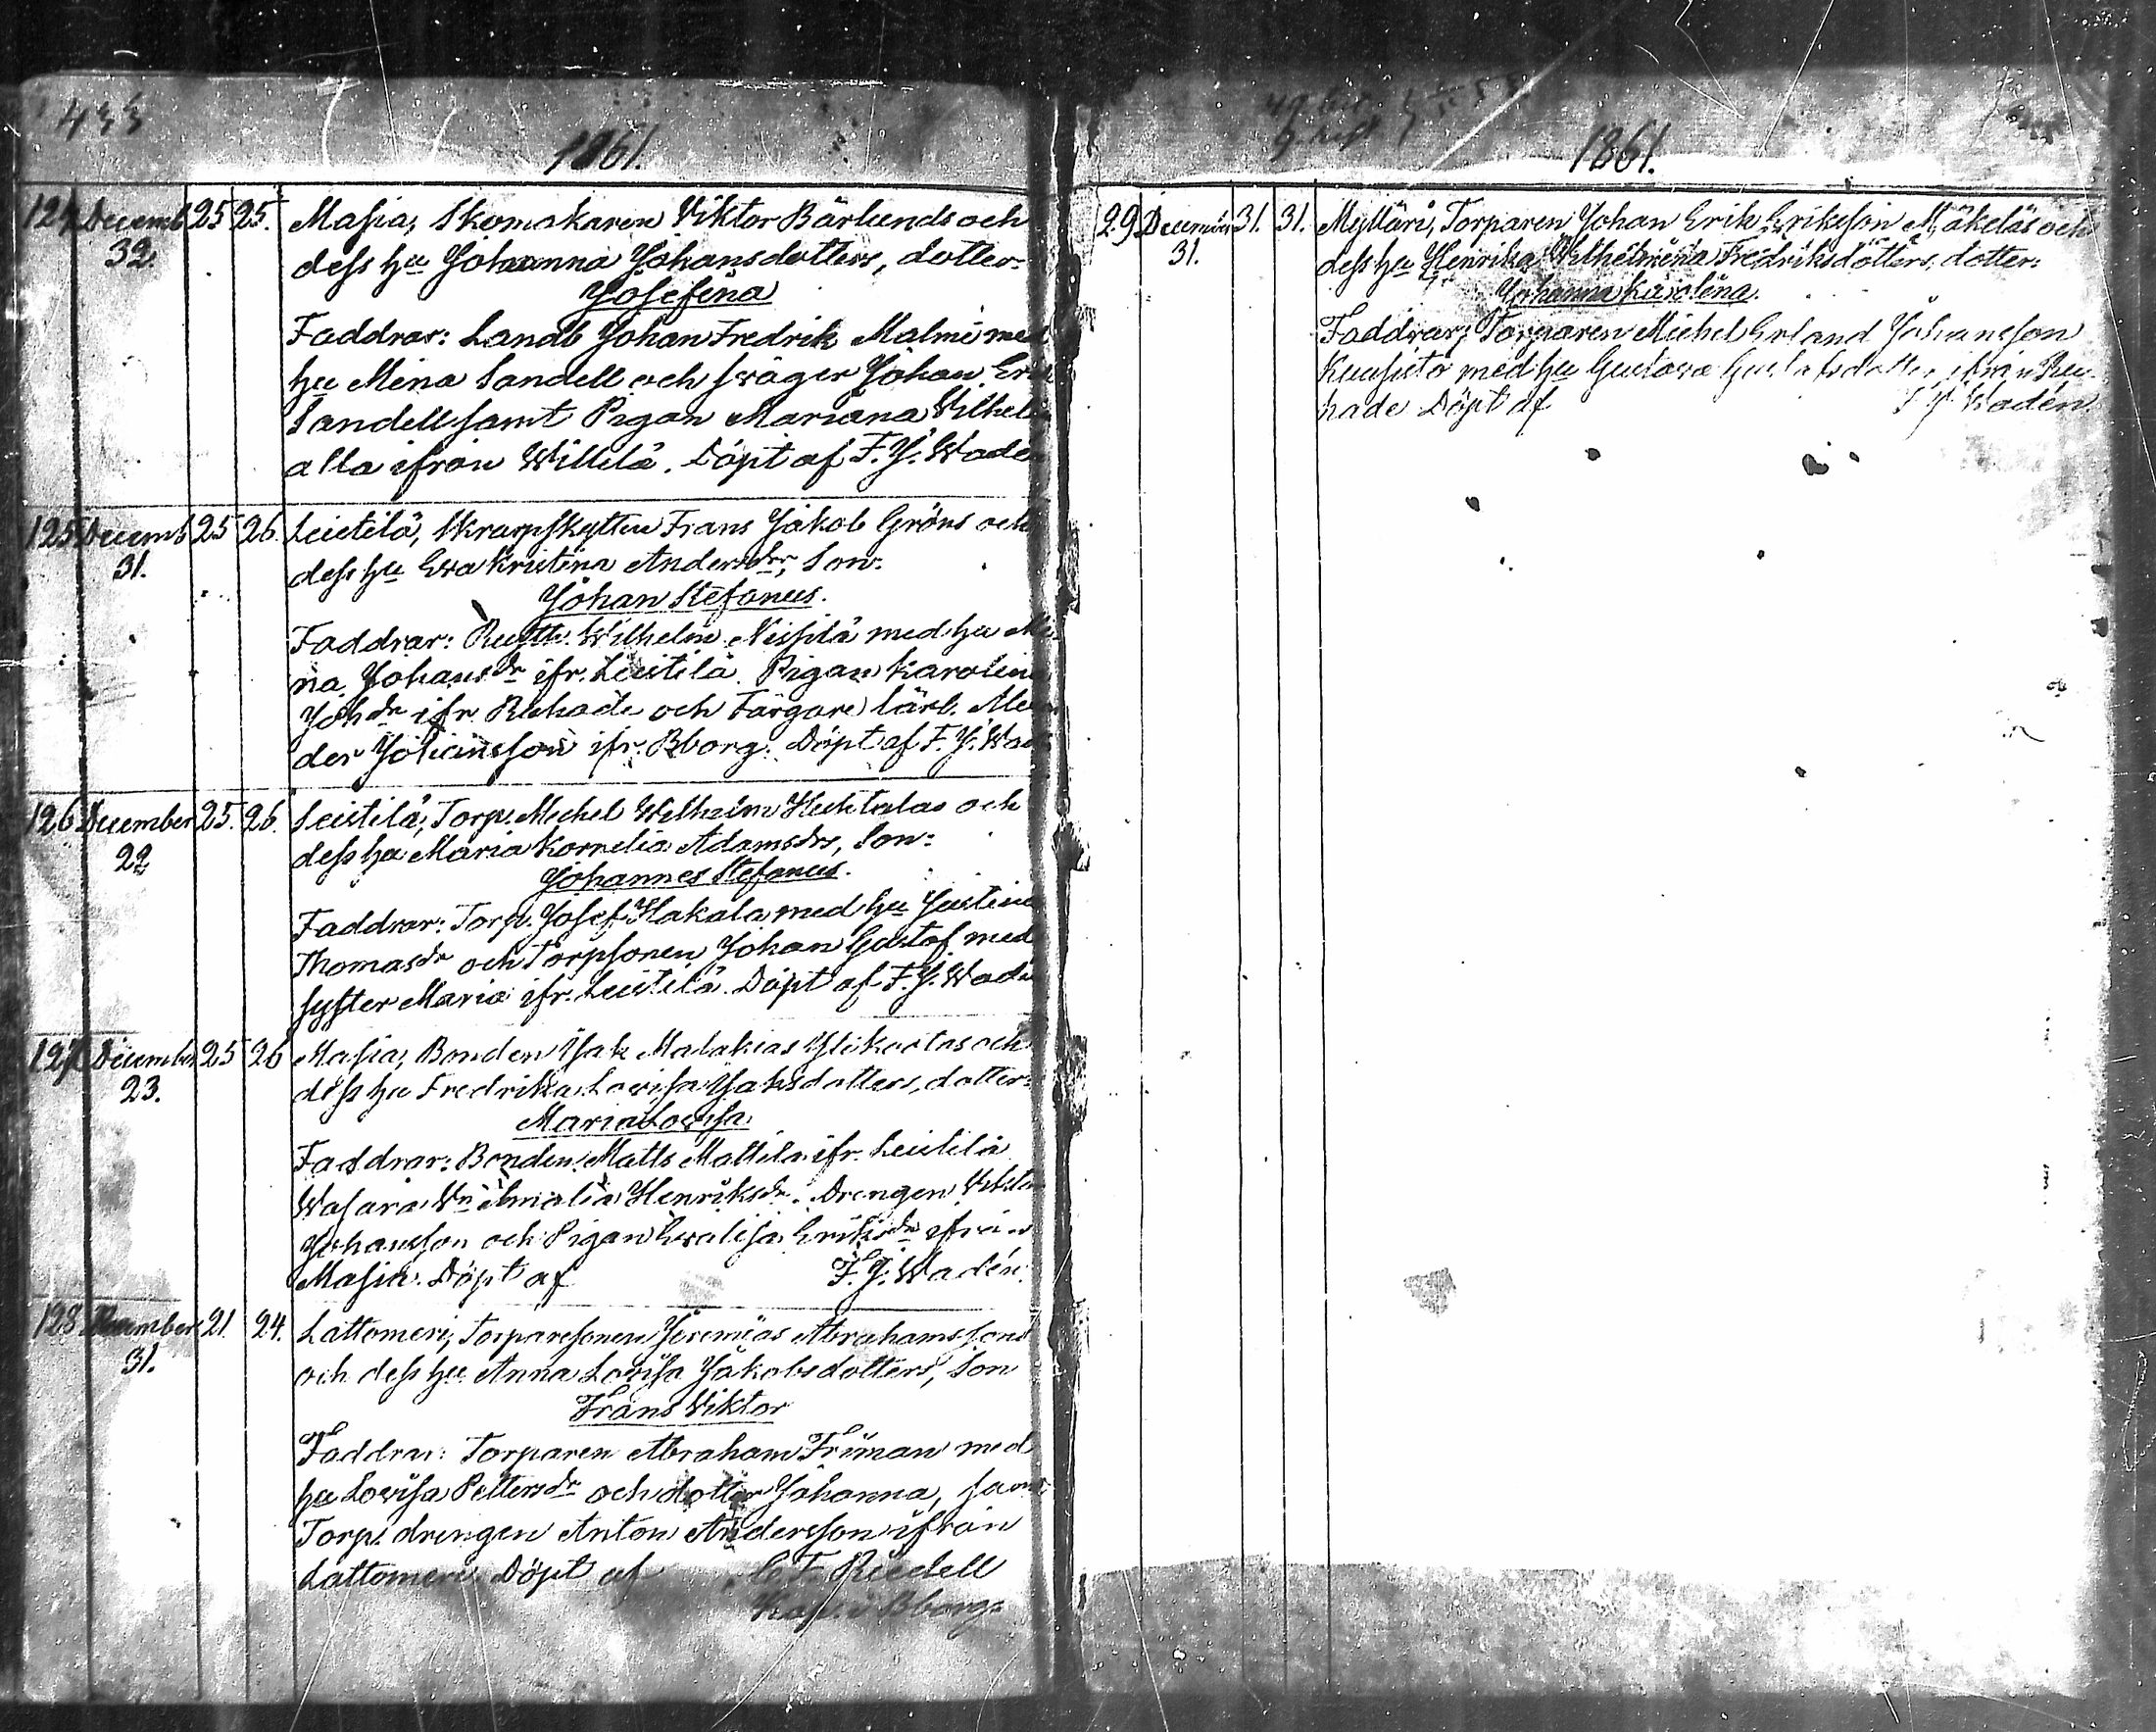 1861.
124 Decemb 25 25. Masia, Skomakaren Viktor Bärlunds och
32. dess hu Johanna Johansdotters, dotter:
Josefina
Faddrar: Landb Johan Fredrik Malmi med
hu Mina Sandell och swåger Johan
Sandell samt Pigan Mariana
alla ifrån Willilä. Döpt af F. J. Wadén
125 Decemb 25 26. Leistilä, Skarpskytten Frans Jakob Gröns och
31. dess hu Eva Kristina Andersdrs, Son:
Johan Stefanus.
Faddrar: Wilhelm Nissilä med hu Mi
na Johansdr ifr. Leistilä. Pigan Karolina
Johdr ifr. och Färgare lärl.
der Johansson ifr. Bborg. Döpt af F. J.
126 December 25. 26. Leistilä, Torp. Michel Wilhelm Huhtalas och
22 dess hu Maria Kornelia Adamsdrs, Son:
Johannes Stefanus.
Faddrar: Torp. Josef Hakala med hu Justina
Thomasdr och Torpsonen Johan Gustaf med
syster Maria ifr. Leistilä. Döpt af F. J. Wadén
127 December 25 26 Masia, Bonden Isak Malakias och
23. dess hu Fredrika Lovisa Isaksdotters, dotter:
Maria Lovisa.
Faddrar: Bonden Matts Mattila ifr. Leistilä
Amalia Henriksdr. Drengen
Johansson och Pigan Evalisa Eriksdr ifrån
Masia. Döpt af F. J. Wadén.
128 December 21. 24. Lattomeri, Torparesonen Jeremias Abrahamssons
31. och dess hu Anna Lovisa Jakobsdotters, Son
Frans Viktor
Faddrar: Torparen Abraham Friman med
hu Lovisa Pettersdr och dotter Johanna, samt
Torp. drengen Anton Andersson ifrån
Lattomeri. Döpt af Riedell
i Bborg.
1861.
29 December 31. 31. Mylläri, Torparen Johan Erik Eriksson Mäkeläs och
31. dess hu Henrika Wilhelmina Fredriksdotters, dotter:
Johanna Karolina.
Faddrar: Torparen Michel Erland Johansson
Kuusisto med hu Gustava Gustafsdotter ifrån
Döpt af F. J. Wadén.